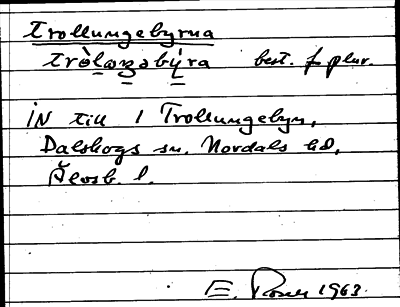 Trollungebyrna
best. f plur.
IN till 1 Trollungebyn,
Dalskogs sn. Nordals hd,
Älvsb. l.
E. Rosell 1963.